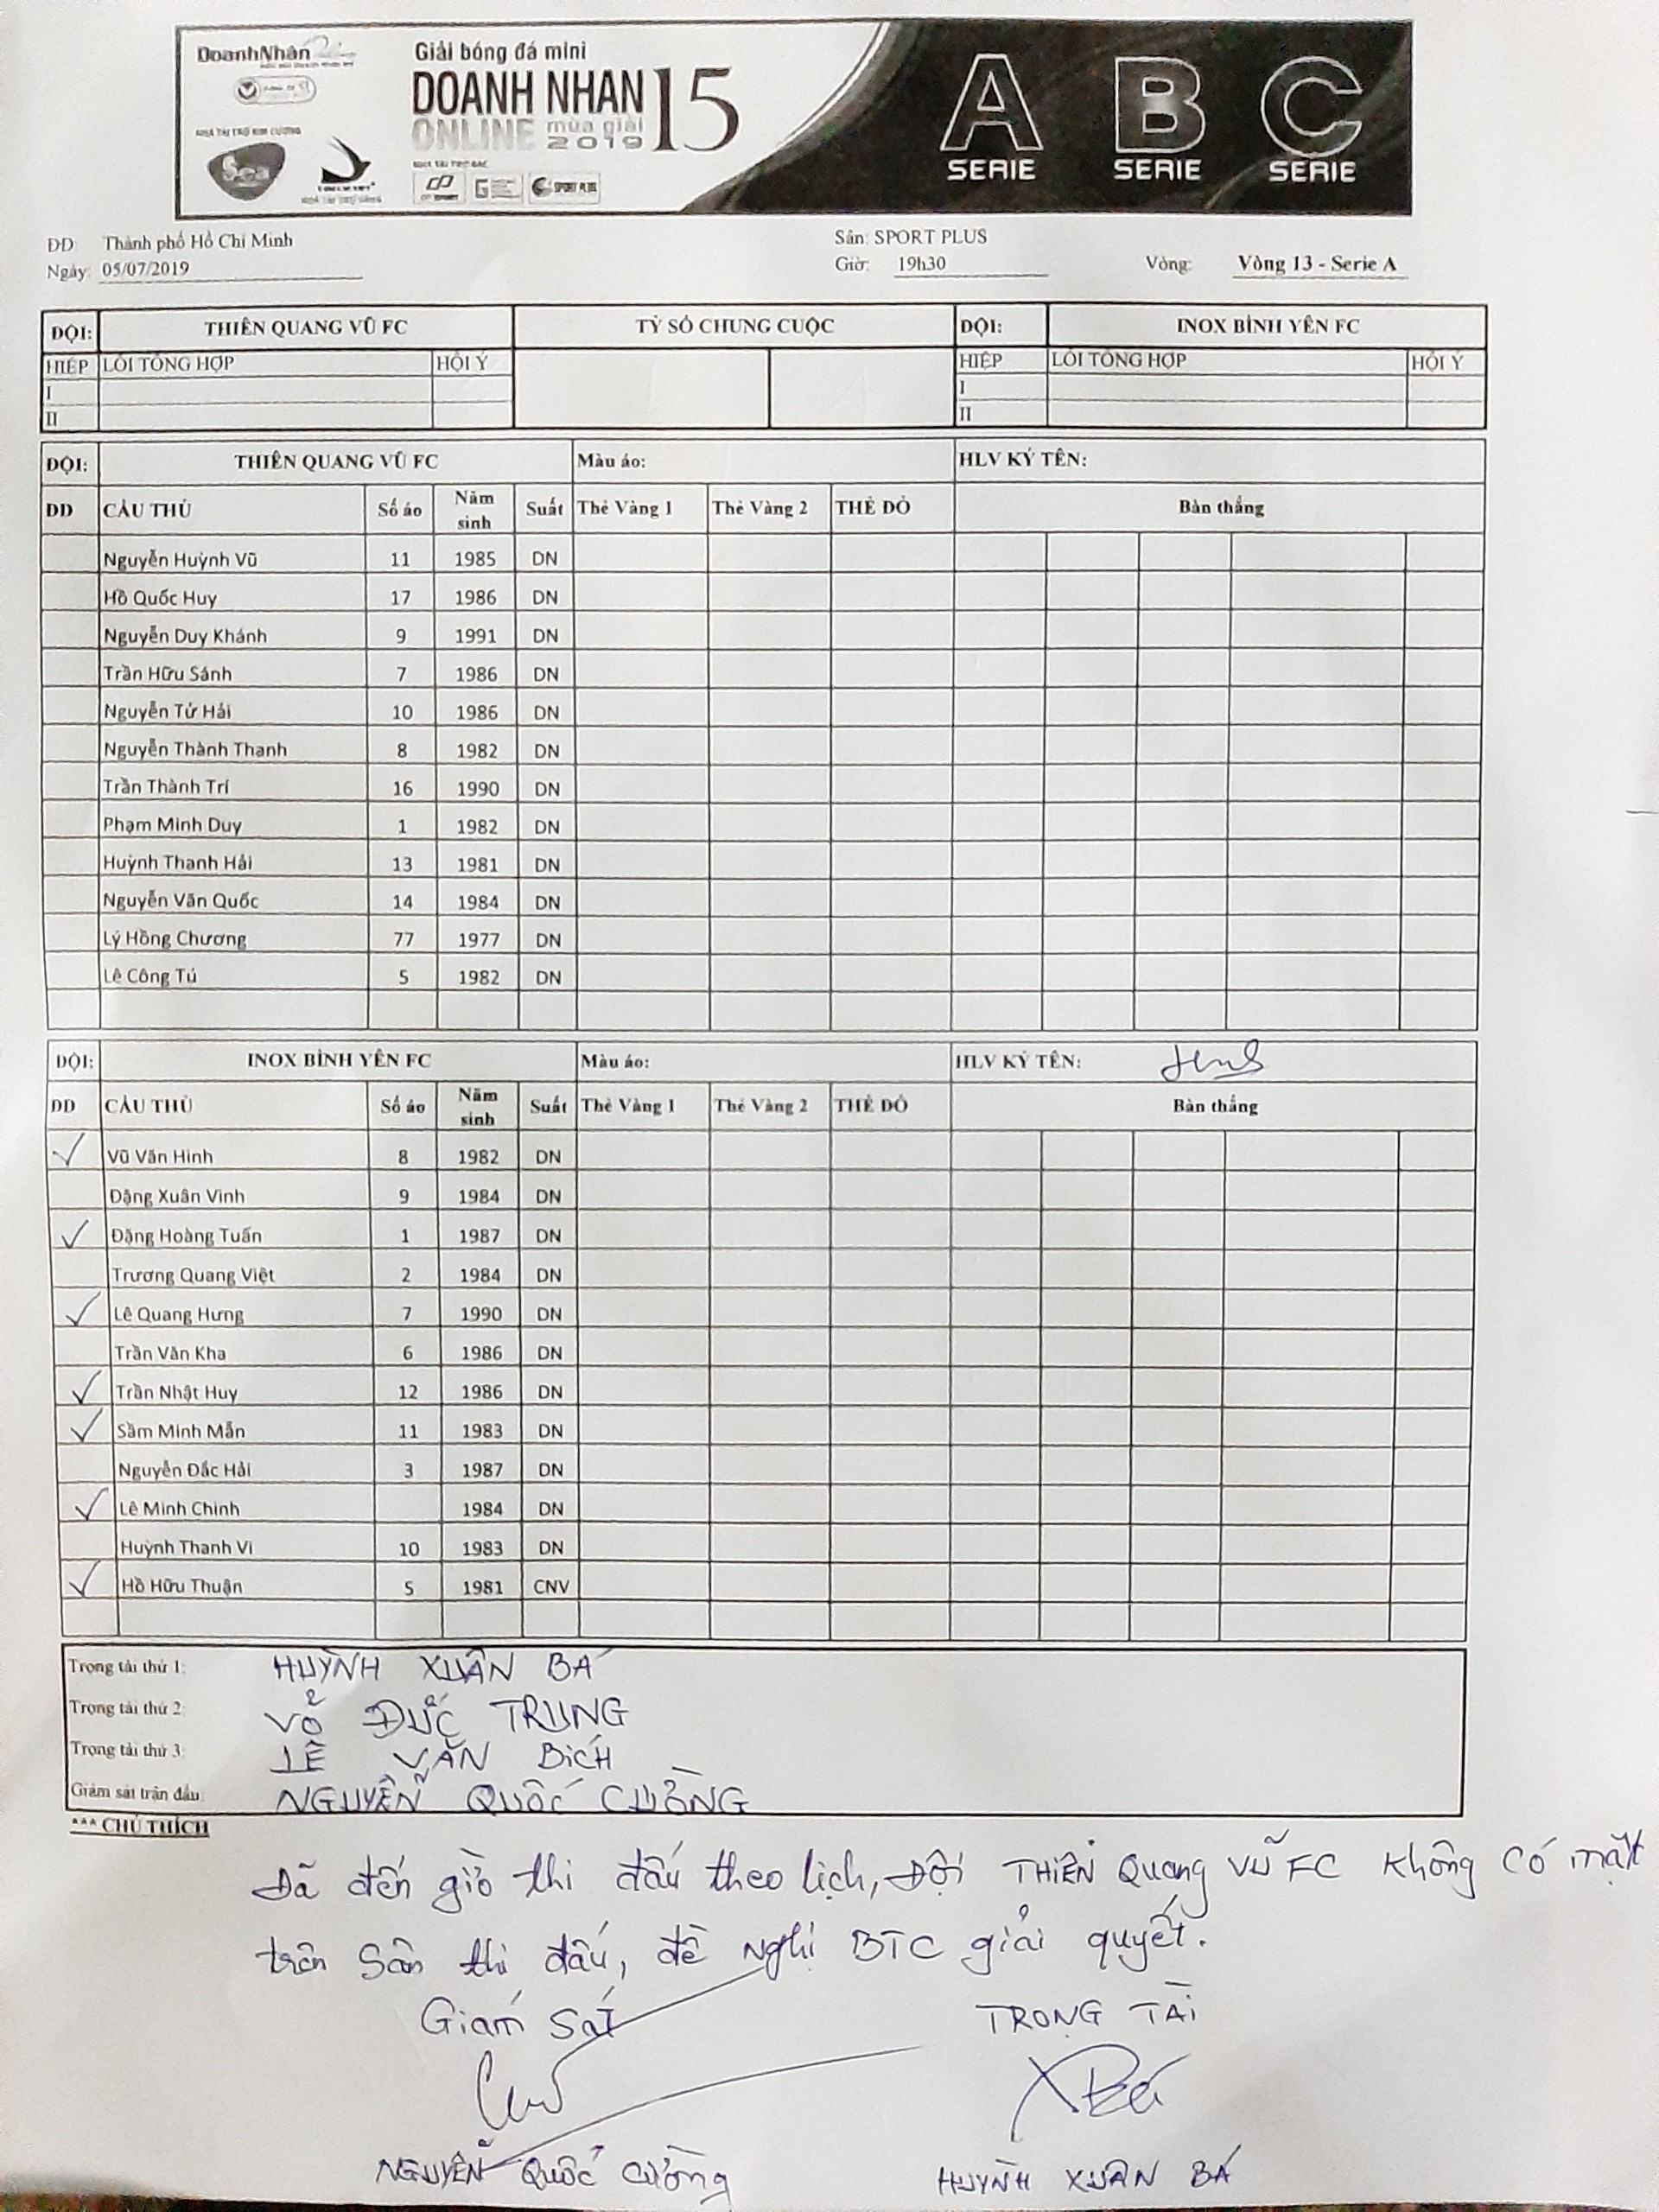 DoanhNhân
Giải bóng đá mini
DOANH NHAN 15
ONLINE mùa giải 2019
NHÀ TÀI TRỢ KIM CƯƠNG
Sea
SPORT PLUS
A SERIE
B SERIE
C SERIE
ĐD: Thành phố Hồ Chí Minh
Sân: SPORT PLUS
Ngày: 05/07/2019
Giờ: 19h30
Vòng: Vòng 13 - Serie A
ĐỘI: THIÊN QUANG VŨ FC TỶ SỐ CHUNG CUỘC ĐỘI: INOX BÌNH YÊN FC
HIỆP LỖI TỔNG HỢP HỘI Ý HIỆP LỖI TỔNG HỢP HỘI Ý
I I
II II
ĐỘI: THIÊN QUANG VŨ FC Màu áo: HLV KÝ TÊN:
DD CẦU THỦ Số áo Năm sinh Suất Thẻ Vàng 1 Thẻ Vàng 2 THẺ ĐỎ Bàn thắng
Nguyễn Huỳnh Vũ 11 1985 DN
Hồ Quốc Huy 17 1986 DN
Nguyễn Duy Khánh 9 1991 DN
Trần Hữu Sánh 7 1986 DN
Nguyễn Tứ Hải 10 1986 DN
Nguyễn Thành Thanh 8 1982 DN
Trần Thành Trí 16 1990 DN
Phạm Minh Duy 1 1982 DN
Huỳnh Thanh Hải 13 1981 DN
Nguyễn Văn Quốc 14 1984 DN
Lý Hồng Chương 77 1977 DN
Lê Công Tú 5 1982 DN
ĐỘI: INOX BÌNH YÊN FC Màu áo: HLV KÝ TÊN:
DD CẦU THỦ Số áo Năm sinh Suất Thẻ Vàng 1 Thẻ Vàng 2 THẺ ĐỎ Bàn thắng
✓ Vũ Văn Hinh 8 1982 DN
Đặng Xuân Vinh 9 1984 DN
✓ Đặng Hoàng Tuấn 1 1987 DN
Trương Quang Việt 2 1984 DN
✓ Lê Quang Hưng 7 1990 DN
Trần Văn Kha 6 1986 DN
✓ Trần Nhật Huy 12 1986 DN
✓ Sầm Minh Mẫn 11 1983 DN
Nguyễn Đắc Hải 3 1987 DN
✓ Lê Minh Chinh 1984 DN
Huỳnh Thanh Vi 10 1983 DN
✓ Hồ Hữu Thuận 5 1981 CNV
Trọng tài thứ 1: HUỲNH XUÂN BÁ
Trọng tài thứ 2: VÕ ĐỨC TRUNG
Trọng tài thứ 3: LÊ VĂN BíCH
Giám sát trận đấu: NGUYỄN QUỐC CƯỜNG
*** CHÚ THÍCH
Đã đến giờ thi đấu theo lịch, Đội THIÊN Quang VŨ FC Không có mặt
trên sân thi đấu, đề nghị BTC giải quyết.
Giám sát TRỌNG TÀI
XBá
NGUYỄN Quốc Cường HUỲNH XUÂN BÁ